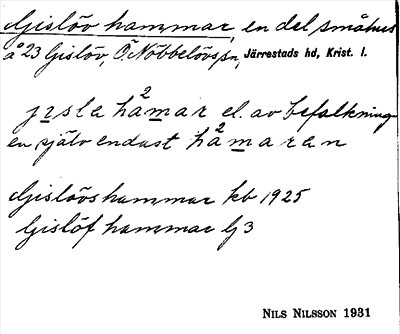 Gislöv hammar, en del småhus
å 23 Gislöv, Ö. Nöbbelövs sn, Järrestads hd, Krist. l.
jısla hamar el. av befolkningen
själv endast hamaran
Gislövshammar kb 1925
Gislöf hammar Gj 3
NILS NILSSON 1931